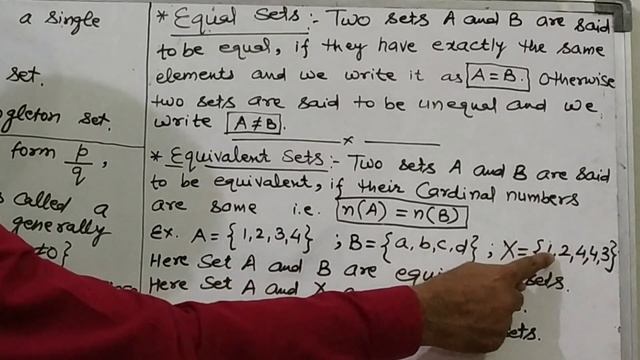 a single
set.
gleton set.
form p/q,
s called a
generally
≠0}
* Equal Sets :- Two sets A and B are said
to be equal, if they have exactly the same
elements and we write it as A = B. Otherwise
two sets are said to be unequal and we
write A ≠ B.
x
* Equivalent Sets :- Two sets A and B are said
to be equivalent, if their Cardinal numbers
are same i.e. n(A) = n(B)
Ex. A = {1,2,3,4} ; B = {a,b,c,d} ; X = {1,2,4,4,3}
Here Set A and B are equi sets.
Here Set A and X a
ets.